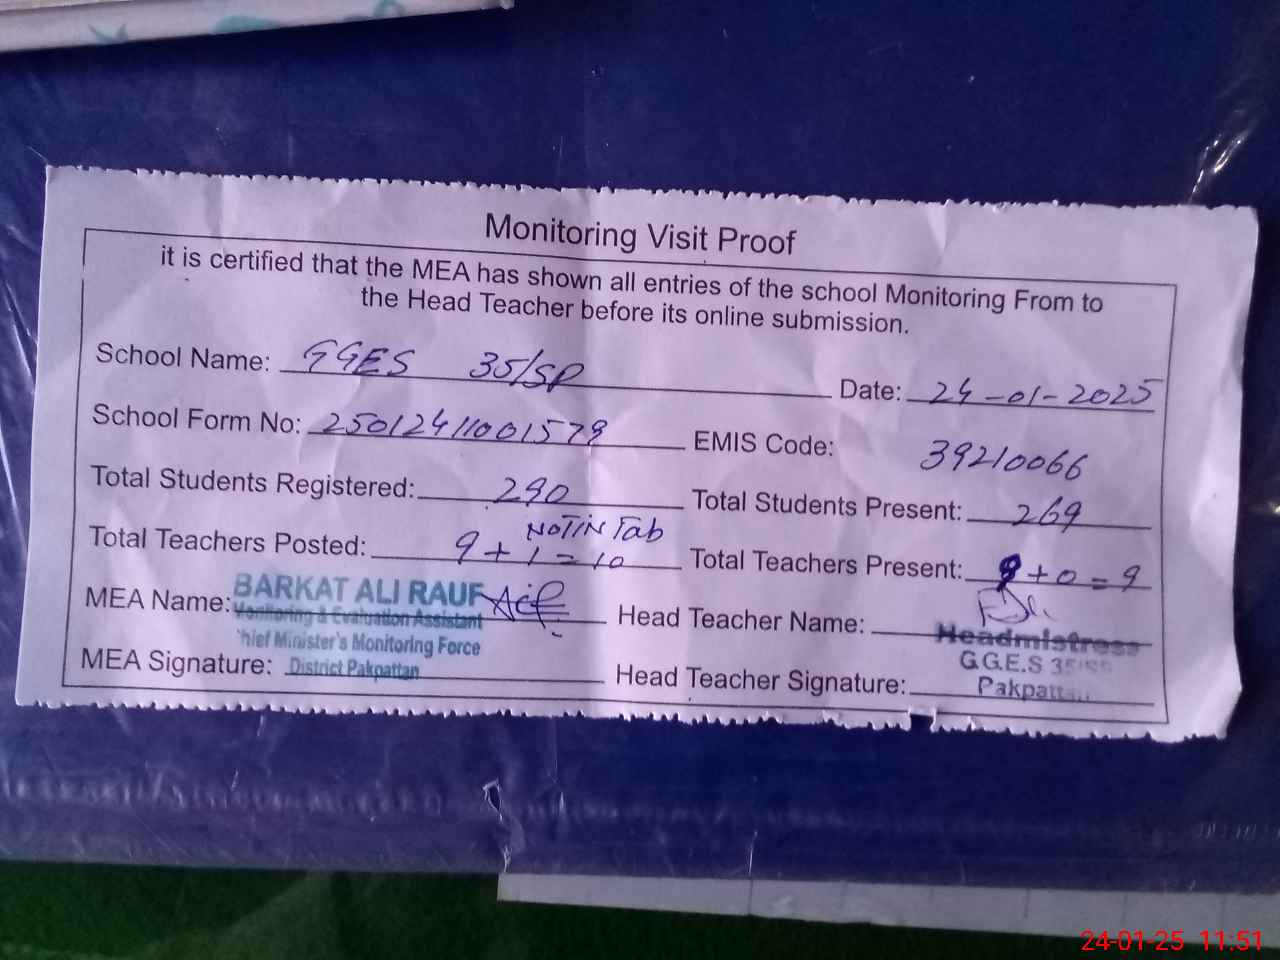 Monitoring Visit Proof
it is certified that the MEA has shown all entries of the school Monitoring From to
the Head Teacher before its online submission.
School Name: GGES 35/SP Date: 24-01-2025
School Form No: 25012411001579 EMIS Code: 39210066
Total Students Registered: 290 Total Students Present: 269
NOT IN Tab
Total Teachers Posted: 9 + 1 = 10 Total Teachers Present: 9 + 0 = 9
MEA Name: BARKAT ALI RAUF Head Teacher Name:
Monitoring & Evaluation Assistant Headmistress
Chief Minister's Monitoring Force G.G.E.S 35/SP
MEA Signature: District Pakpattan Head Teacher Signature: Pakpattan
24-01-25 11:51